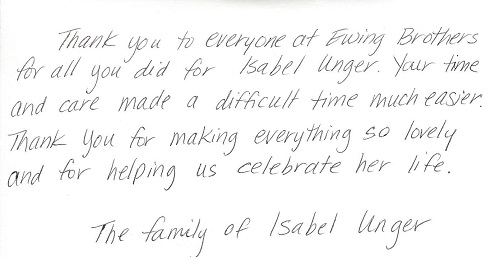 Thank you to everyone at Ewing Brothers
for all you did for Isabel Unger. Your time
and care made a difficult time much easier.
Thank you for making everything so lovely
and for helping us celebrate her life.
The family of Isabel Unger